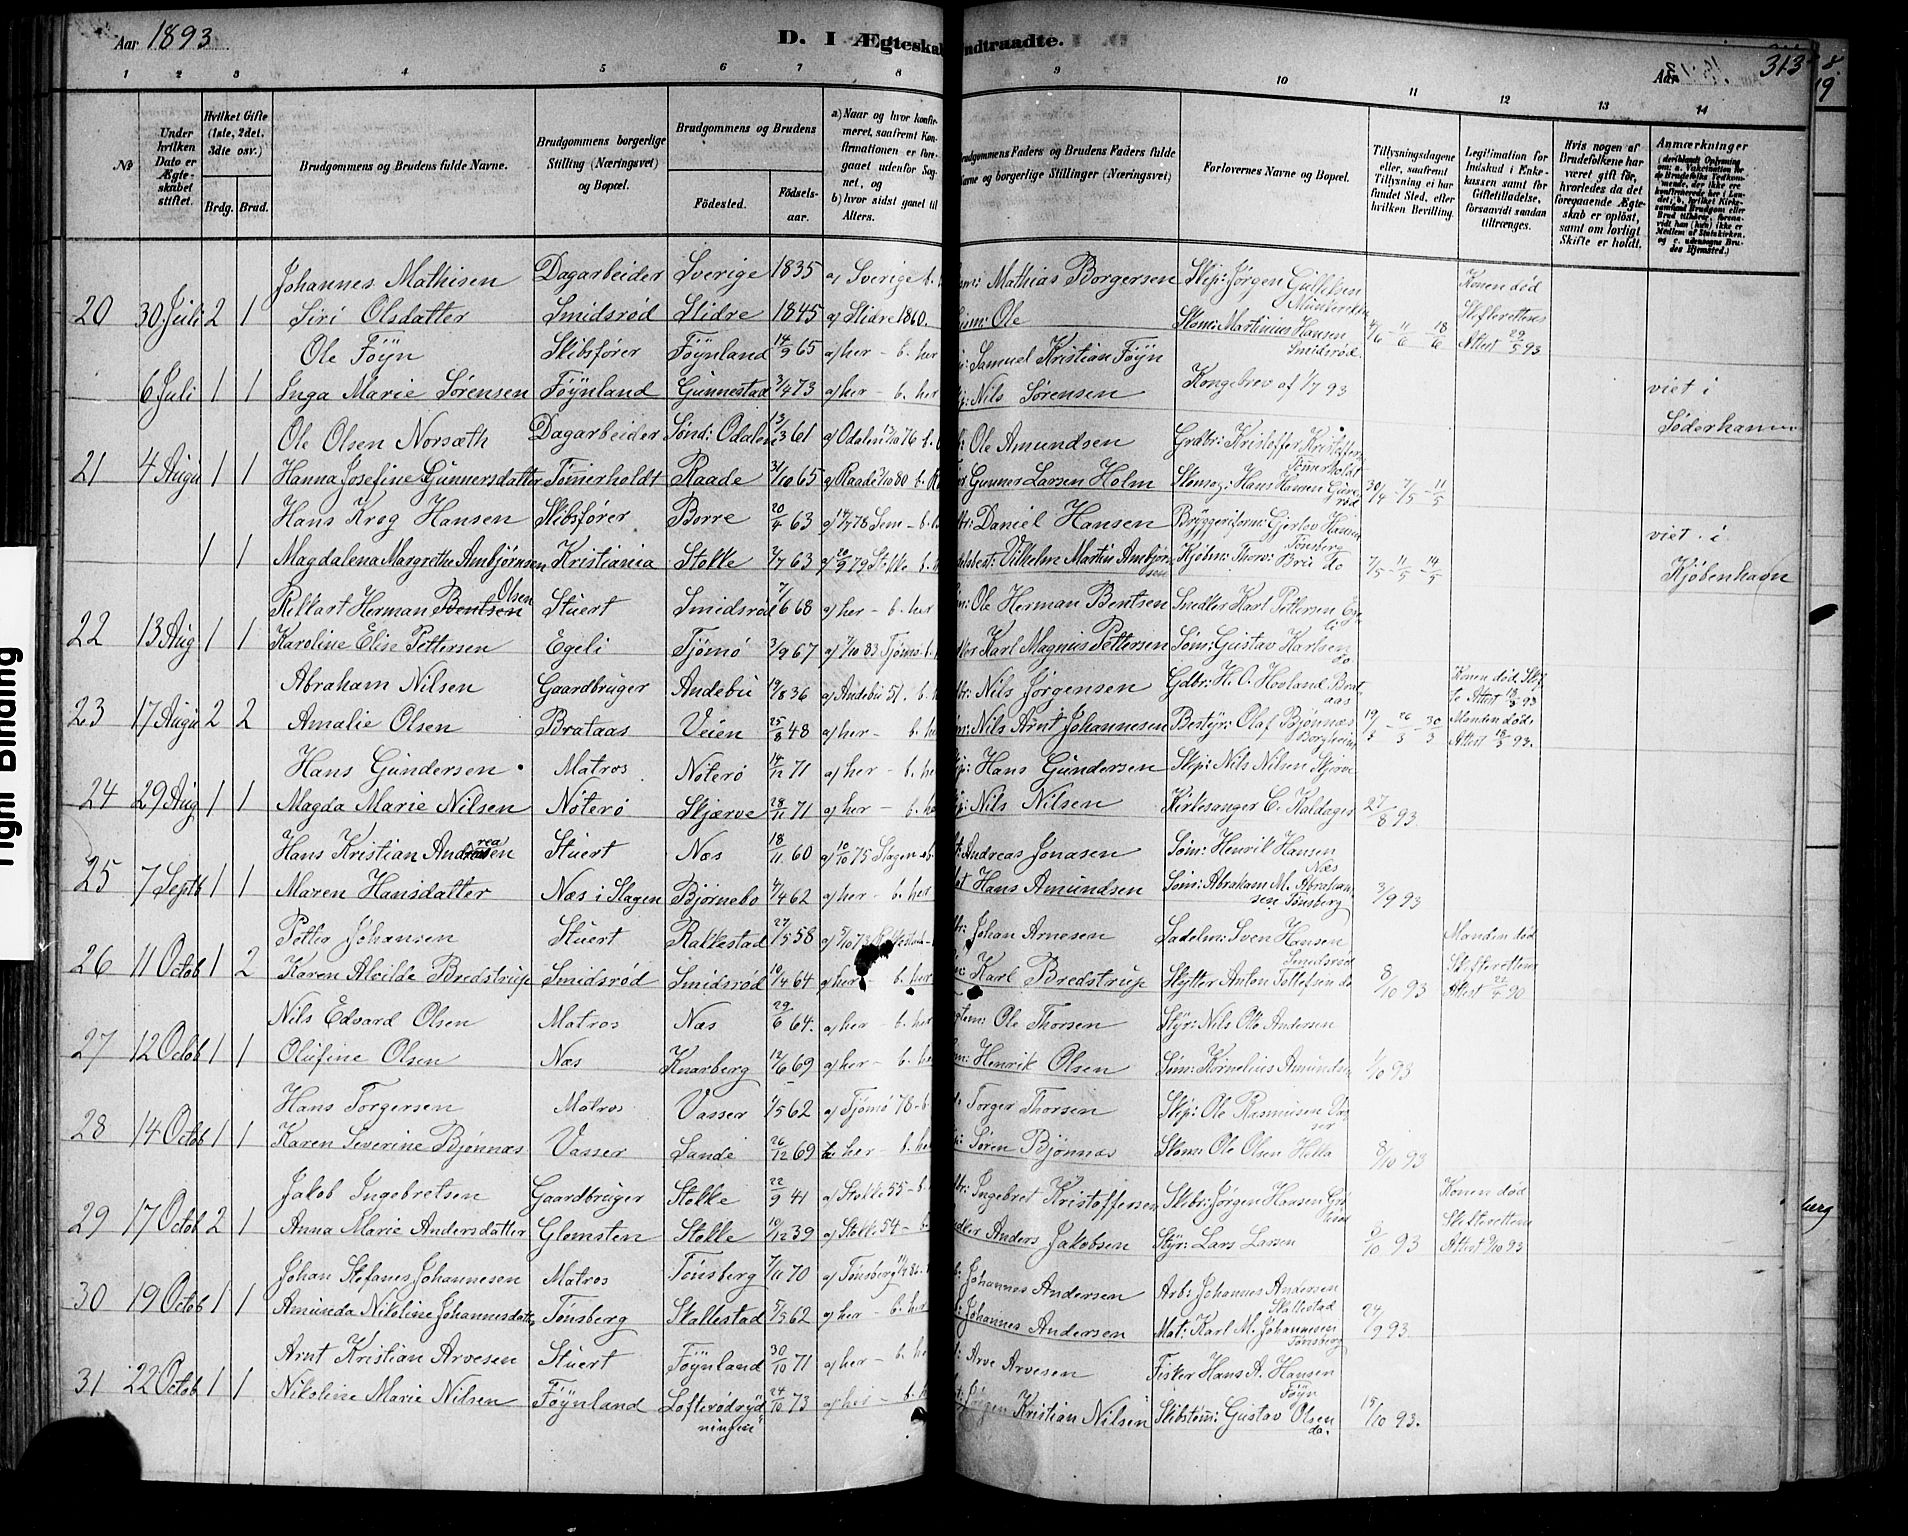 Aar 1893
D. I Ægteskab Indtraadte.
Aar
313
1 2 3 4 5 6 7 8 9 10 11 12 13 14
No
Under hvilken Dato er Ægteskabet stiftet.
Hvilket Gifte (1ste, 2det, 3die osv.)
Brdg. Brud.
Brudgommens og Brudens fulde Navne.
Brudgommens borgerlige Stilling (Næringsvei) og Bopæl.
Brudgommens og Brudens
Födested.
Födsels-aar.
a) Naar og hvor konfirmeret, saafremt Konfirmationen er foregaaet udenfor Sognet, og
b) hvor sidst gaaet til Alters.
Brudgommens Faders og Brudens Faders fulde Navne og borgerlige Stillinger (Næringsvei)
Forlovernes Navne og Bopæl.
Tillysningsdagene eller, saafremt Tillysning ei har fundet Sted, efter hvilken Bevilling.
Legitimation for Indskud i Enkekassen samt for Giftetilladelse, forsaavidt saadan tiltrænges.
Hvis nogen af Brudefolkene har været gift før, hvorledes da det foregaaende Ægteskab er opløst, samt om lovligt Skifte er holdt.
Anmærkninger
Johannes Mathisen Dagarbeider Sverige 1835 a/ Sverige b. Mathias Borgersen Skip: Jørgen Gulliksen Konen død
20 30 Juli 2 1 Siri Olsdatter Smidsrød Slidre 1845 a/ Slidre 1860. Ole Skom: Martinius Hansen Smidsrød 4/6 - 11/6 - 18/6 Skifterettens Attest 29/5 93
Ole Føyn Skibsfører Føynland 14/9 65 a/ her - b. her Samuel Kristian Føyn
6 Juli 1 1 Inga Marie Sørensen Føynland Gunnestad 3/4 73 a/ her - b. her Nils Sørensen Kongebrev af 1/7 93 viet i Søderhamn
Ole Olsen Norsæth Dagarbeider Sønd: Odalen 13/3 61 a/ Odalen 76 b. Ole Amundsen Grdbr: Kristoffer Kristoffersen Tømmerholdt
21 4 Augu 1 1 Hanna Josefine Gunnersdatter Tømmerholdt Raade 31/10 65 a/ Raade 3/10 80 b. Gunner Larsen Holm Skomag: Hans Hansen 30/4 - 7/5 - 11/5
Hans Krog Hansen Skibsfører Borre 20/4 63 a/ 78 Sem - b. Daniel Hansen Bryggeriform: Gjerlov Hansen Tønsberg
1 1 Magdalena Margrethe Ambjørnsen Kristiania Stokke 2/7 63 a/ 79 Stokke b. Vilhelm Martin Ambjørnsen Kjøbm: Thorv: Brie do 7/5 - 11/5 - 14/5 viet i Kjøbenhavn
Rikkart Herman Bentsen Olsen Stuert Smidsrød 7/6 68 a/ her - b. her Ole Herman Bentsen Snedker Karl Pettersen Egeli
22 13 Aug 1 1 Karoline Elise Pettersen Egeli Tjømø 3/9 67 a/ 7/10 83 Tjømø b. Karl Magnus Pettersen Søm: Gustav Karlsen do
Abraham Nilsen Gaardbruger Andebu 19/8 36 a/ Andebu 51. b. her Nils Jørgensen Gdbr: H. O. Hovland Brataas Konen død Attest 18/3 93
23 17 Augu 2 2 Amalie Olsen Brataas Veien 25/8 48 a/ her - b. her Nils Arnt Johannesen Bestyr: Olaf Bjønnæs Borgheim 19/3 - 26/3 - 30/3 Manden død Attest 18/3 93.
Hans Gundersen Matros Nøterø 14/12 71 a/ her - b. her Hans Gundersen Skip: Nils Nilsen Skjerve
24 29 Aug 1 1 Magda Marie Nilsen Nøterø Skjærve 28/11 71 a/ her - b. her Nils Nilsen Kirkesanger C. Kaldager 27/8 93.
Hans Kristian Andreasen Stuert Næs 18/11 60 a/ 10/10 75 Slagen b. Andreas Jonasen Søm: Henrik Hansen Næs
25 7 Septb 1 1 Maren Hansdatter Næs i Slagen Bjørnebo 4/4 62 a/ her - b. her Hans Amundsen Søm: Abraham M. Abrahamsen Tønsberg 3/9 93
Petter Johansen Stuert Rakkestad 27/5 58 a/ 5/10 73 Rakkestad Johan Arnesen Sadelm: Sven Hansen Smidsrød Manden død
26 11 Octob 1 2 Karen Alvilde Bredstrup Smidsrød Smidsrød 10/4 64 a/ her - b. her Karl Bredstrup Skytter Anton Tollefsen do 8/10 93 Skifterettens Attest 22/4 90
Nils Edvard Olsen Matros Næs 29/6 64. a/ her - b. her Ole Thorsen Styr: Nils Otto Andersen
27 12 Octob 1 1 Olufine Olsen Næs Knarberg 12/6 69 a/ her - b. her Henrik Olsen Søm: Kornelius Amundsen 1/10 93
Hans Torgersen Matros Vasser 4/5 62 a/ Tjømø 78 - b. Torger Thorsen Skip: Ole Rasmussen Vasser
28 14 Octob 1 1 Karen Severine Bjønnæs Vasser Sande 26/12 69 her - b. her Søren Bjønnæs Skom: Ole Olsen Hella 8/10 93
Jakob Ingebretsen Gaardbruger Stokke 22/9 41 a/ Stokke 55 - b. Ingebret Kristoffersen Skibr: Jørgen Hansen Konen død
29 17 Octob 2 1 Anna Marie Andersdatter Glomsten Stokke 10/12 39 a/ Stokke 54 - b. Anders Jakobsen Styr: Lars Larsen 8/10 93 Skifterettens Attest 9/10 93
Johan Stefanes Johannesen Matros Tønsberg 7/11 70 a/ Tønsberg Johannes Andersen Arb: Johannes Andersen Skallestad
30 19 Octob 1 1 Amunda Nikoline Johannesdatter Tønsberg Skallestad 5/5 62 a/ her - b. her Johannes Andersen Mat: Karl M. Johannesen Tønsberg 24/9 93.
Arnt Kristian Arvesen Stuert Føynland 30/10 71 a/ her - b. her Arve Arvesen Fisker Hans A. Hansen Føyn
31 22 Octob 1 1 Nikoline Marie Nilsen Føynland Lofterødrydningen 24/10 73 a/ her - b. her Jørgen Kristian Nilsen Skibstøm: Gustav Olsen do. 15/10 93.
Tight Binding